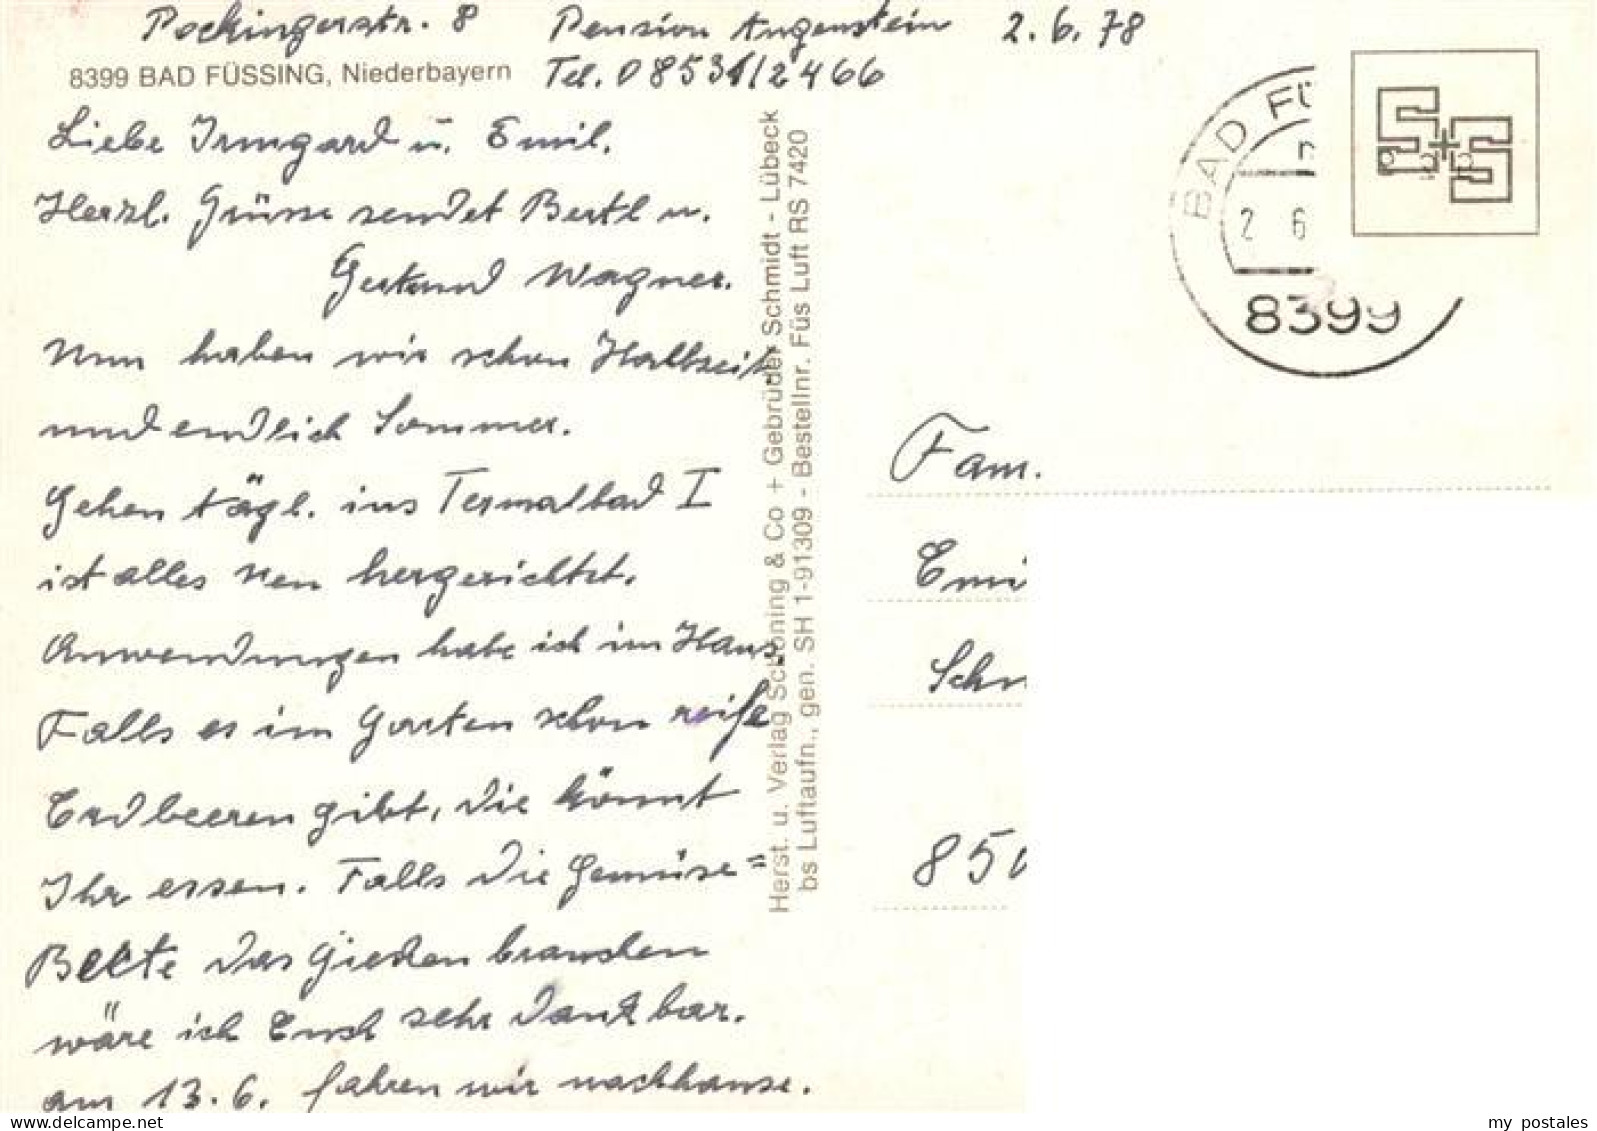 Pockingerstr. 8 Pension Angenstein 2.6.78
8399 BAD FÜSSING, Niederbayern Tel. 08531/2466
Liebe Irmgard u. Emil.
Herzl. Grüsse sendet Bertl u.
Gertraud Wagner.
Nun haben wir schon Halbzeit
und endlich Sommer.
Gehen tägl. ins Termalbad I
ist alles neu hergerichtet.
Anwendungen habe ich im Haus.
Falls es im Garten schon reife
Erdbeeren gibt, die könnt
Ihr essen. Falls die Gemüse=
Beete das Gießen brauchen
wäre ich Euch sehr dankbar.
am 13.6. fahren wir nachhause.
Herst. u. Verlag Schöning & Co + Gebrüder Schmidt - Lübeck
bs Luftaufn., gen. SH 1-91309 - Bestellnr. Füs Luft RS 7420
BAD FÜ
2 6
8399
S+S
Fam.
Emi
Schn
850
my postales